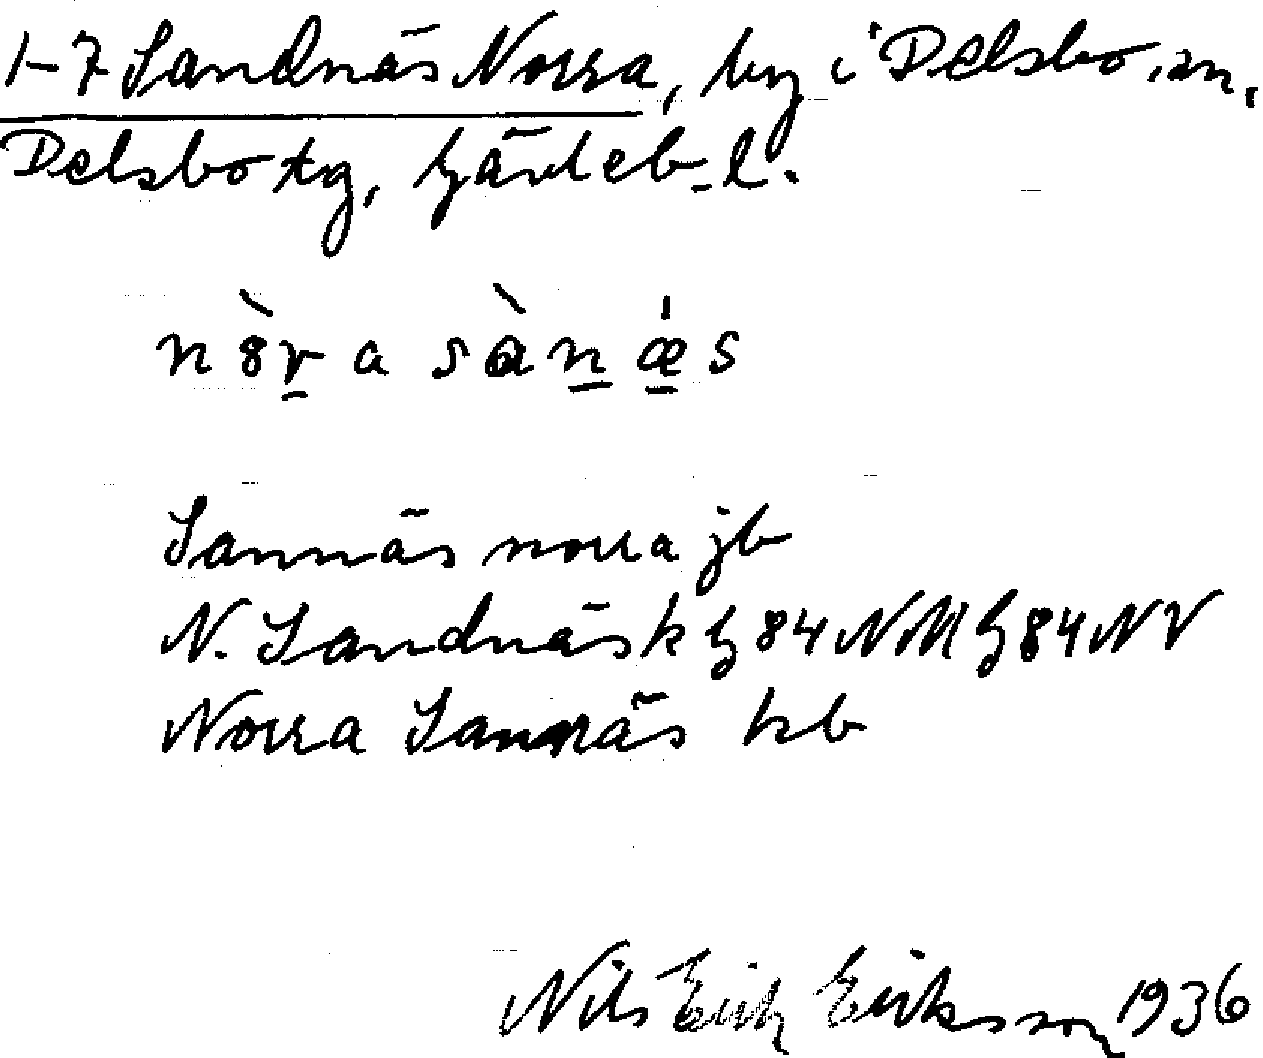 1-7 Sandnäs Norra, by i Delsbo sn,
Delsbo tg, Gävleb. l.
nòr̲a sàn̲ǽ̲s
Sannäs norra jb
N. Sandnäs k G 84 NM G 84 NV
Norra Sannäs kb
Nils Erik Eriksson 1936